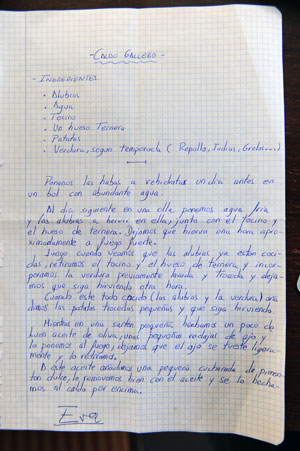 - CALDO GALLEGO -
- INGREDIENTES
• Alubias
• Agua
• Tocino
• Un hueso Ternera
• Patatas
• Verdura, segun temporada ( Repollo, Judias, Grelos...)
Ponemos las habas a rehidratar un dia antes en
un bol con abundante agua.
Al dia siguiente en una olla ponemos agua fria
y las alubias a hervir en ella, junto con el tocino y
el hueso de ternera. Dejamos que hierva una hora apro-
ximadamente a fuego fuerte.
Luego cuando veamos que las alubias ya estan coci-
das, retiramos el tocino y el hueso de ternera, y incor-
poramos la verdura previamente lavada y troceada y deja-
mos que siga hirviendo otra hora.
Cuando este todo cocido (las alubias y la verdura) aña-
dimos las patatas troceadas pequeñas y que siga hirviendo.
Mientras en una sarten pequeña hechamos un poco de
buen aceite de oliva, unas pequeñas rodajas de ajo y
lo ponemos al fuego, dejamos que el ajo se tueste ligera-
mente y lo retiramos.
A este aceite añadimos una pequeña cucharada de pimen-
ton dulce, lo removemos bien con el aceite y se lo hecha-
mos al caldo por encima.
Eva